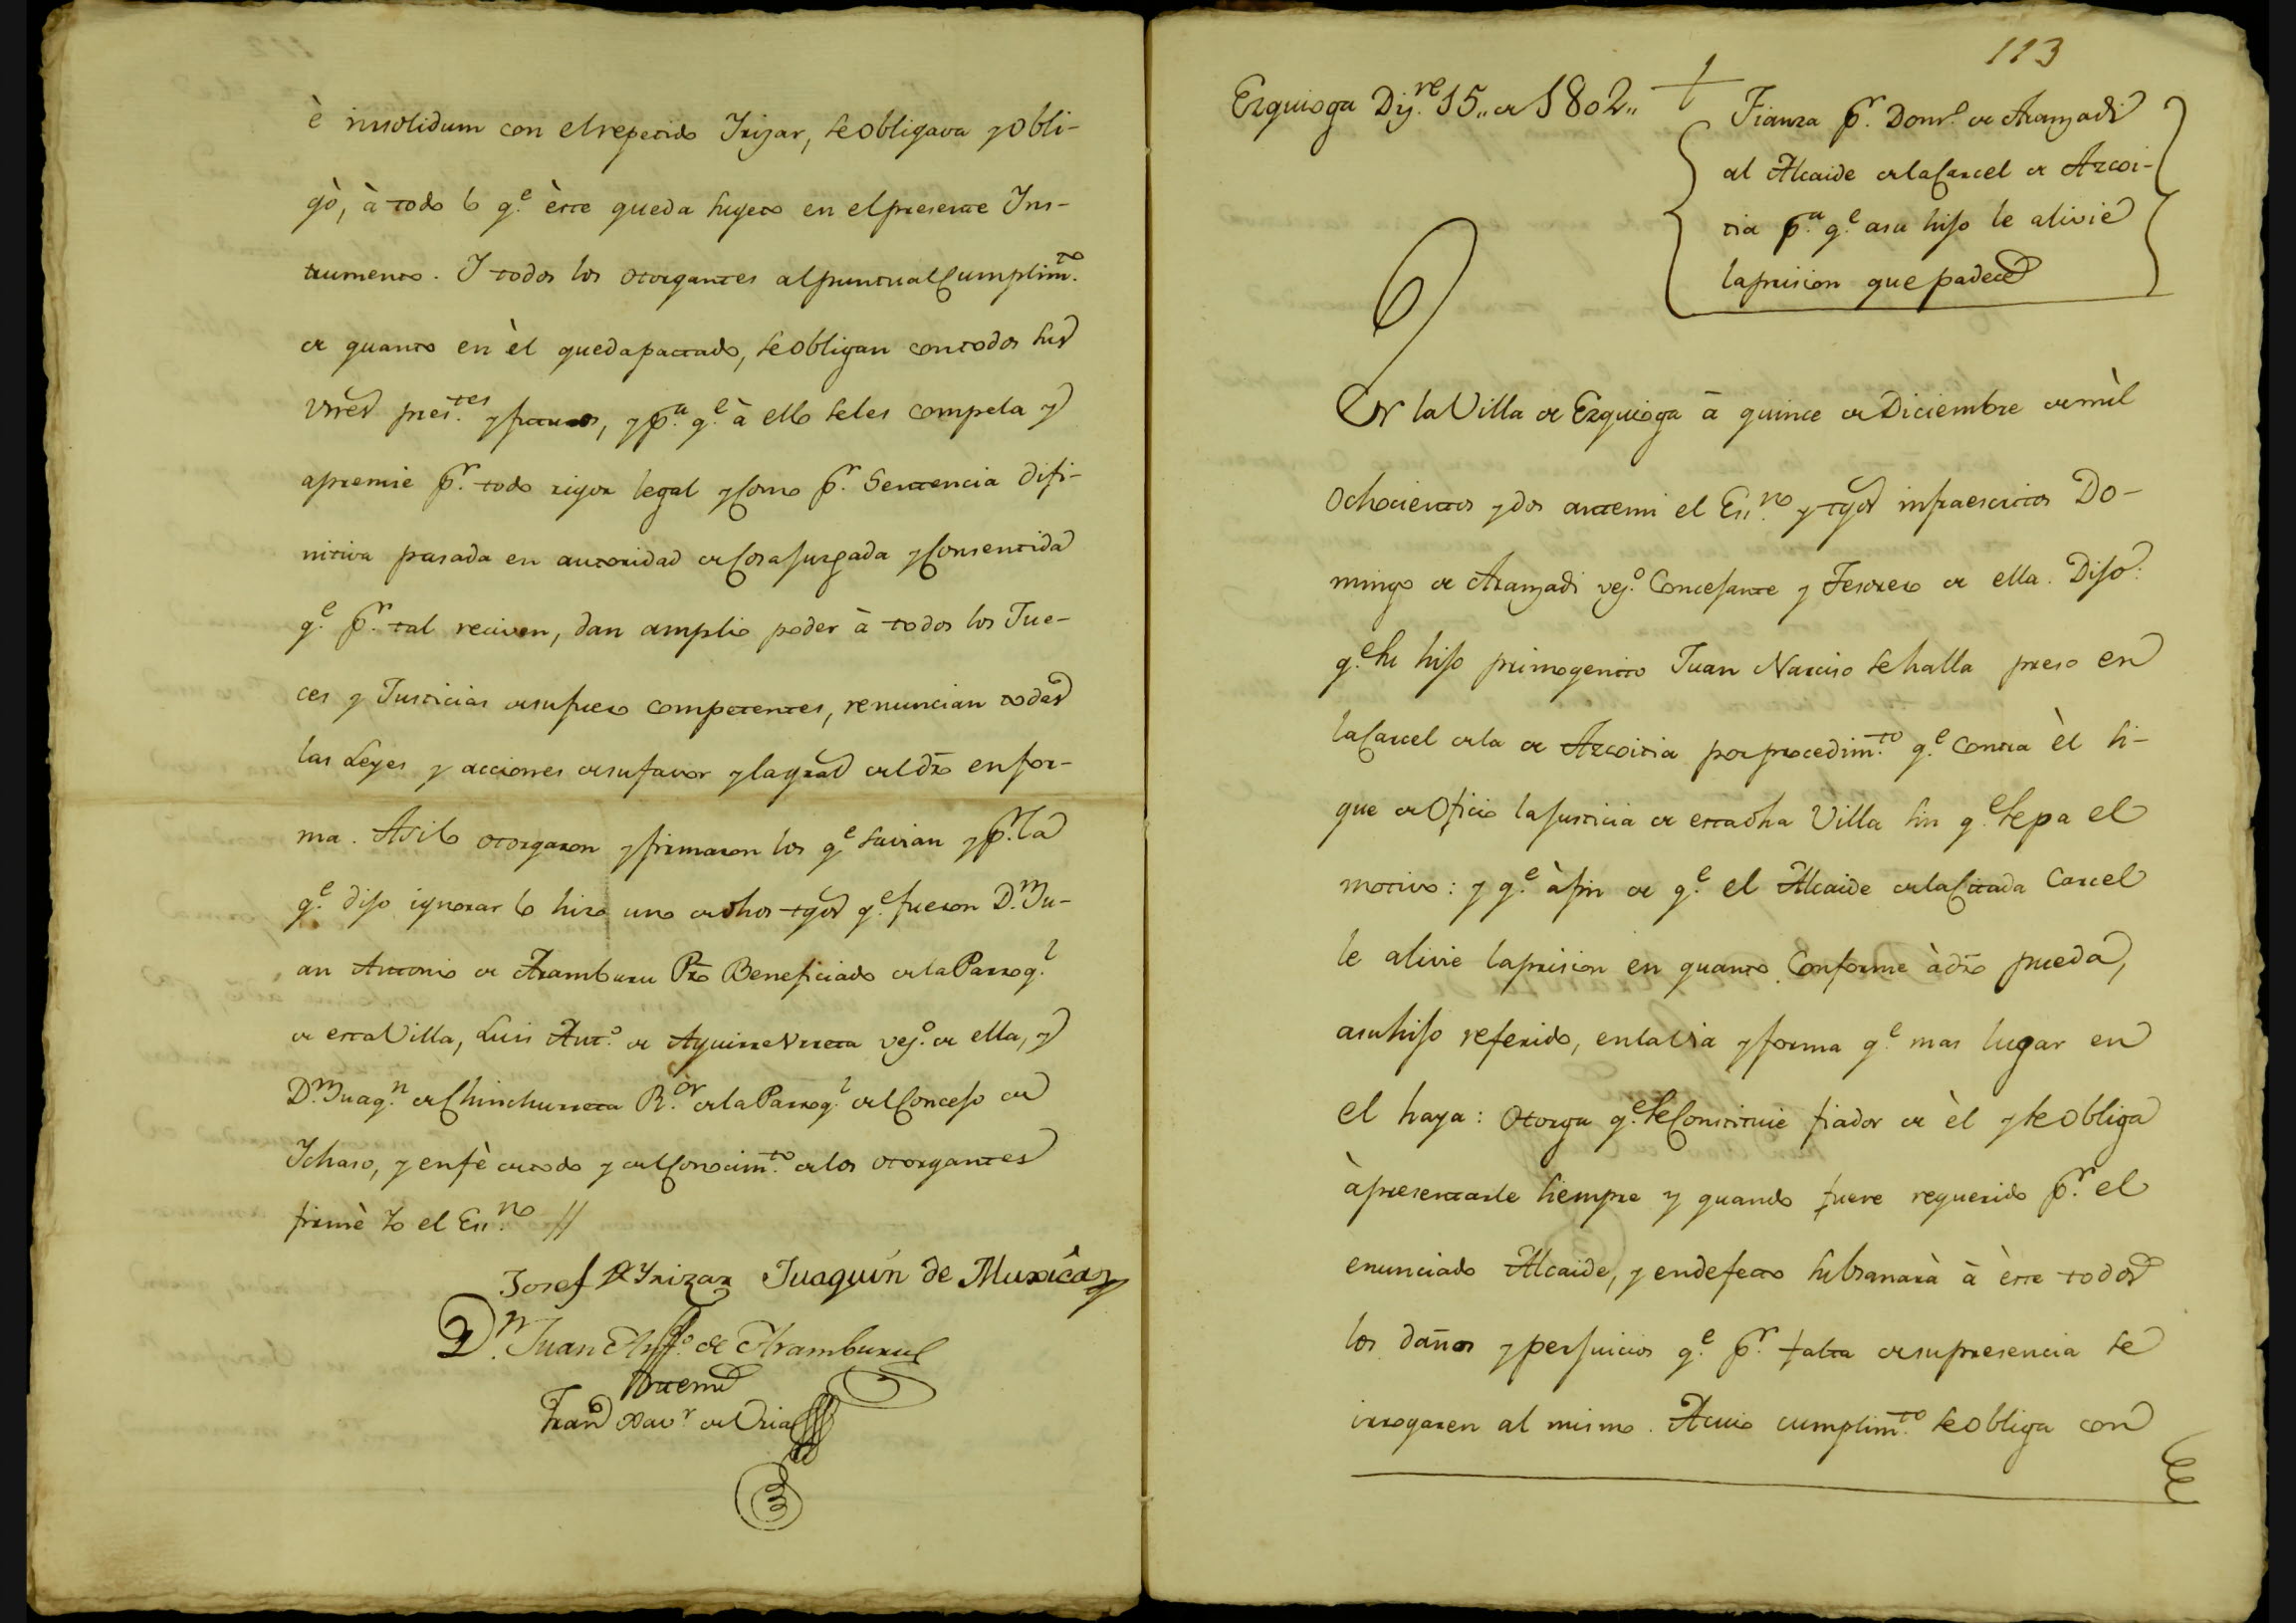 è insolidum con el repetido Yrizar, se obligava y obli-
gò, à todo lo q.e èste queda sugeto en el presente Ins-
trumento. Y todos los otorgantes al puntual Cumplim.to
de quanto en èl queda pactado, se obligan con todos sus
vnes pres.tes y futuros, y p.a q.e à ello se les compela y
apremie p.r todo rigor legal y Como p.r Sentencia difi-
nitiva pasada en autoridad de Cosa Juzgada y Consentida
q.e p.r tal reciven, dan amplio poder à todos los Jue-
ces y Justicias de su fuero competentes, renuncian todas
las Leyes y acciones de su favor y la gral del dro en for-
ma. Asi lo otorgaron y firmaron los q.e savian y p.r la
q.e dijo ignorar lo hizo uno de dhos tgos q.e fueron D.n Ju-
an Antonio de Aramburu Pro Beneficiado de la Parroq.l
de esta Villa, Luis Ant.o de Aguirre Urreta vez.o de ella, y
D.n Juaq.n de Chinchurreta R.or de la Parroq.l del Concejo de
Ichaso, y en fè de todo y del Conocim.to de los otorgantes
firmè Yo el Ess.no //
Josef de Yrizar Juaquin de Muxica
D.n Juan Ant.o de Aramburu
Antemi
Fran.co Xav.r de Oria
113
Ezquioga Diz.re 15,, de 1802,,
Fianza p.r Dom.o de Aranzadi
al Alcaide de la Carcel de Azcoi-
tia p.a q.e a su hijo le alivie
la prision que padece
En la Villa de Ezquioga à quince de Diciembre de mil
ochocientos y dos antemi el Ess.no y tgos infraescritos Do-
mingo de Aranzadi vez.o Concejante y Tesorero de ella. Dijo:
q.e su hijo primogenito Juan Narciso se halla preso en
la Carcel de la de Azcoitia por procedim.to q.e contra èl si-
gue de Oficio la Justicia de esta dha Villa sin q.e sepa el
motivo: y q.e à fin de q.e el Alcaide de la Citada Carcel
le alivie la prision en quanto Conforme à dro pueda,
a su hijo referido, en la via y forma q.e mas lugar en
el haya: Otorga q.e se Constituie fiador de èl y se obliga
à presentarle siempre y quando fuere requerido p.r el
enunciado Alcaide, y en defecto subsanarà à èste todos
los daños y perjuicios q.e p.r falta de su presencia se
irrogaren al mismo. A cuio cumplim.to se obliga con